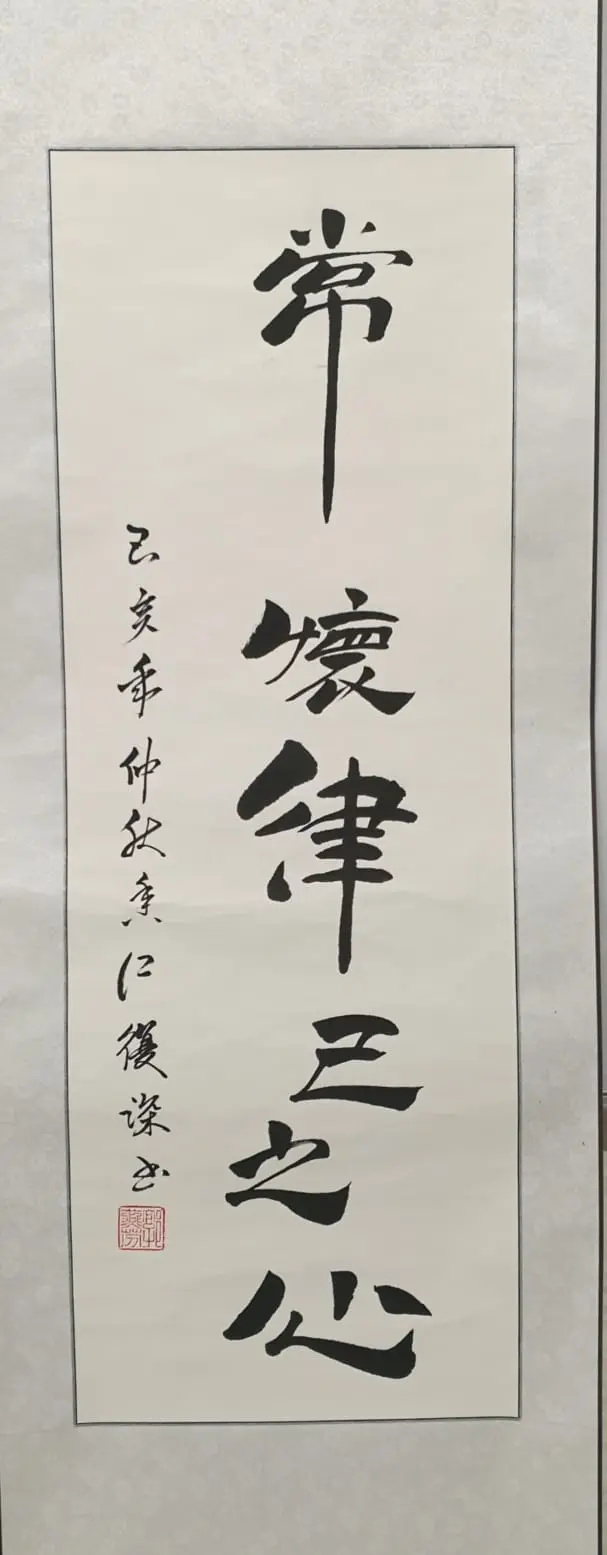 常懷律己之心
己亥年仲秋
仁復深书